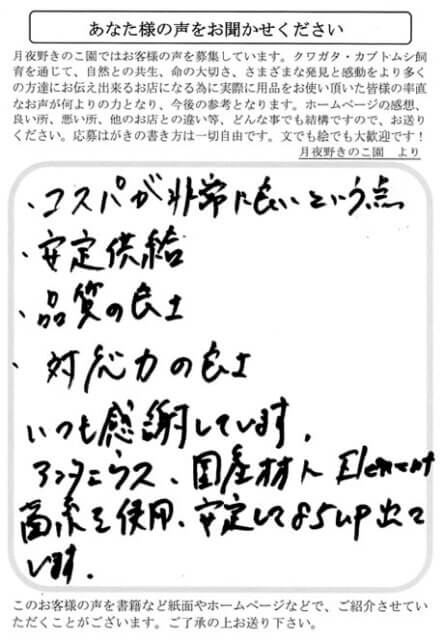 あなた様の声をお聞かせください
月夜野きのこ園ではお客様の声を募集しています。クワガタ・カブトムシ飼
育を通じて、自然との共生、命の大切さ、さまざまな発見と感動をより多く
の方達にお伝え出来るお店になる為に実際に用品をお使い頂いた皆様の率直
なお声が何よりの力となり、今後の参考となります。ホームページの感想、
良い所、悪い所、他のお店との違い等、どんな事でも結構ですので、お送り
ください。応募はがきの書き方は一切自由です。文でも絵でも大歓迎です！
月夜野きのこ園　より
・コスパが非常に良いという点
・安定供給
・品質の良さ
・対応力の良さ
いつも感謝しています。
アンタエウス、国産材人 Element
菌糸を使用、安定して85UP出て
います。
このお客様の声を書籍など紙面やホームページなどで、ご紹介させてい
ただくことがございます。ご了承の上お送り下さい。